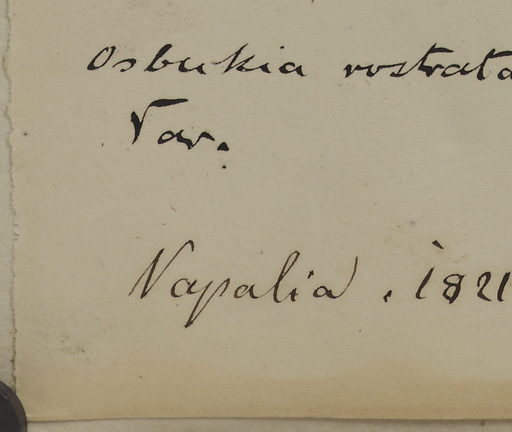 Osbukia rostrata
Var.
Napalia . 1821